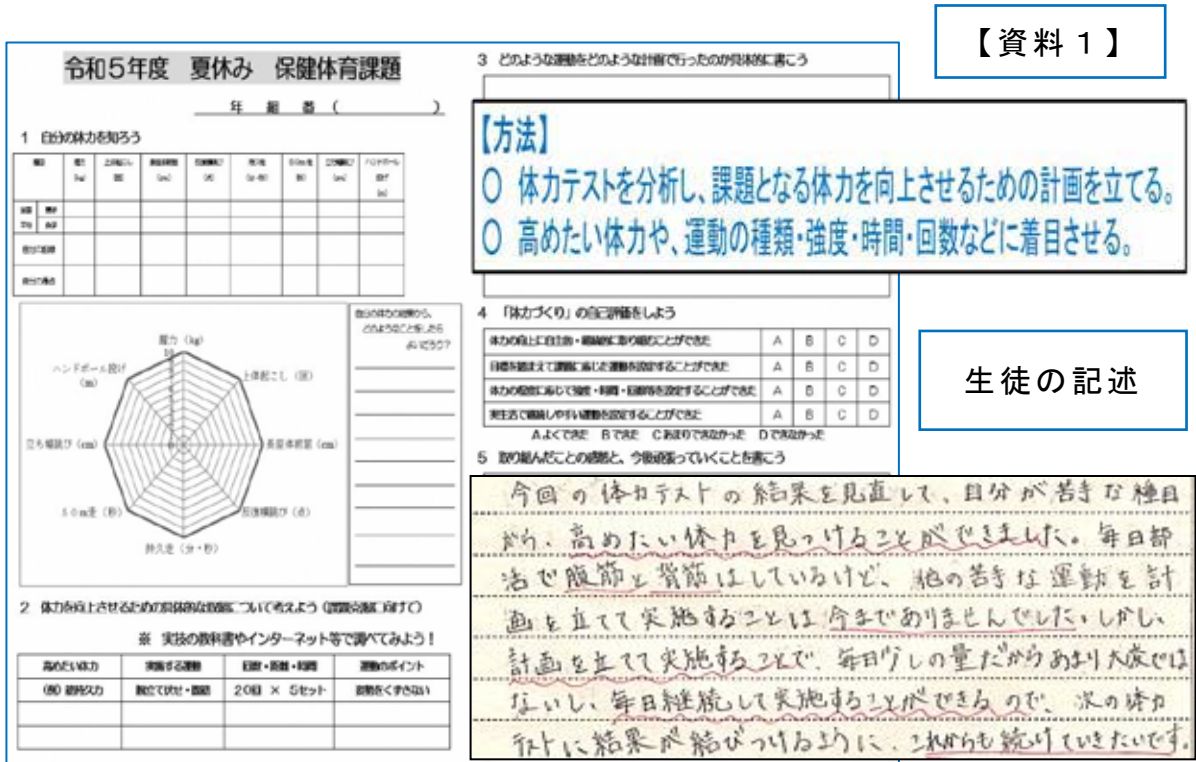 【資料１】
令和５年度　夏休み　保健体育課題
年　組　番（　　　）
1　自分の体力を知ろう
種目　握力　上体起こし　長座体前屈　反復横跳び　持久走　50m走　立ち幅跳び　ハンドボール投げ
(kg)　(回)　(cm)　(点)　(分・秒)　(秒)　(cm)　(m)
自分の記録
自分の得点
握力（kg）
上体起こし（回）
長座体前屈（cm）
反復横跳び（点）
持久走（分・秒）
50m走（秒）
立ち幅跳び（cm）
ハンドボール投げ（m）
自分の体力の結果から、
どのようなことをしたら
よいだろう？
2　体力を向上させるための具体的な取組について考えよう
※　実技の教科書やインターネット等で調べてみよう！
高めたい体力　実施する運動　回数・距離・時間　運動のポイント
(例) 筋持久力　腕立て伏せ・腹筋　20回 × 5セット　姿勢をくずさない
3　どのような運動をどのような計画で行ったのか具体的に書こう
【方法】
○　体力テストを分析し、課題となる体力を向上させるための計画を立てる。
○　高めたい体力や、運動の種類・強度・時間・回数などに着目させる。
4　「体力づくり」の自己評価をしよう
体力の向上に自主的・継続的に取り組むことができた　A　B　C　D
目標を踏まえて課題に応じた運動を設定することができた　A　B　C　D
体力の程度に応じて強度・時間・回数等を設定することができた　A　B　C　D
実生活で継続しやすい運動を設定することができた　A　B　C　D
Aよくできた　Bできた　Cあまりできなかった　Dできなかった
5　取り組んだことの感想と、今後頑張っていくことを書こう
生徒の記述
今回の体力テストの結果を見直して、自分が苦手な種目
から、高めたい体力を見つけることができました。毎日部
活で腹筋と背筋はしているけど、他の苦手な運動を計
画を立てて実施することは今までありませんでした。しかし、
計画を立てて実施することで、毎日少しの量だからあまり大変では
ないし、毎日継続して実施することができるので、次の体力
テストに結果が結びつけるように、これからも続けていきたいです。